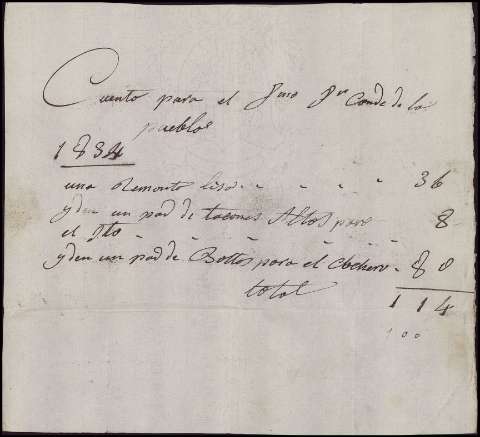 Cuento para el Sr Conde de los
pueblos
1834
una Remonta lisa 36
yden un pad de tacones Altos para 8
el
yden un pad de Bottas para el Cochero 80
total 114
100